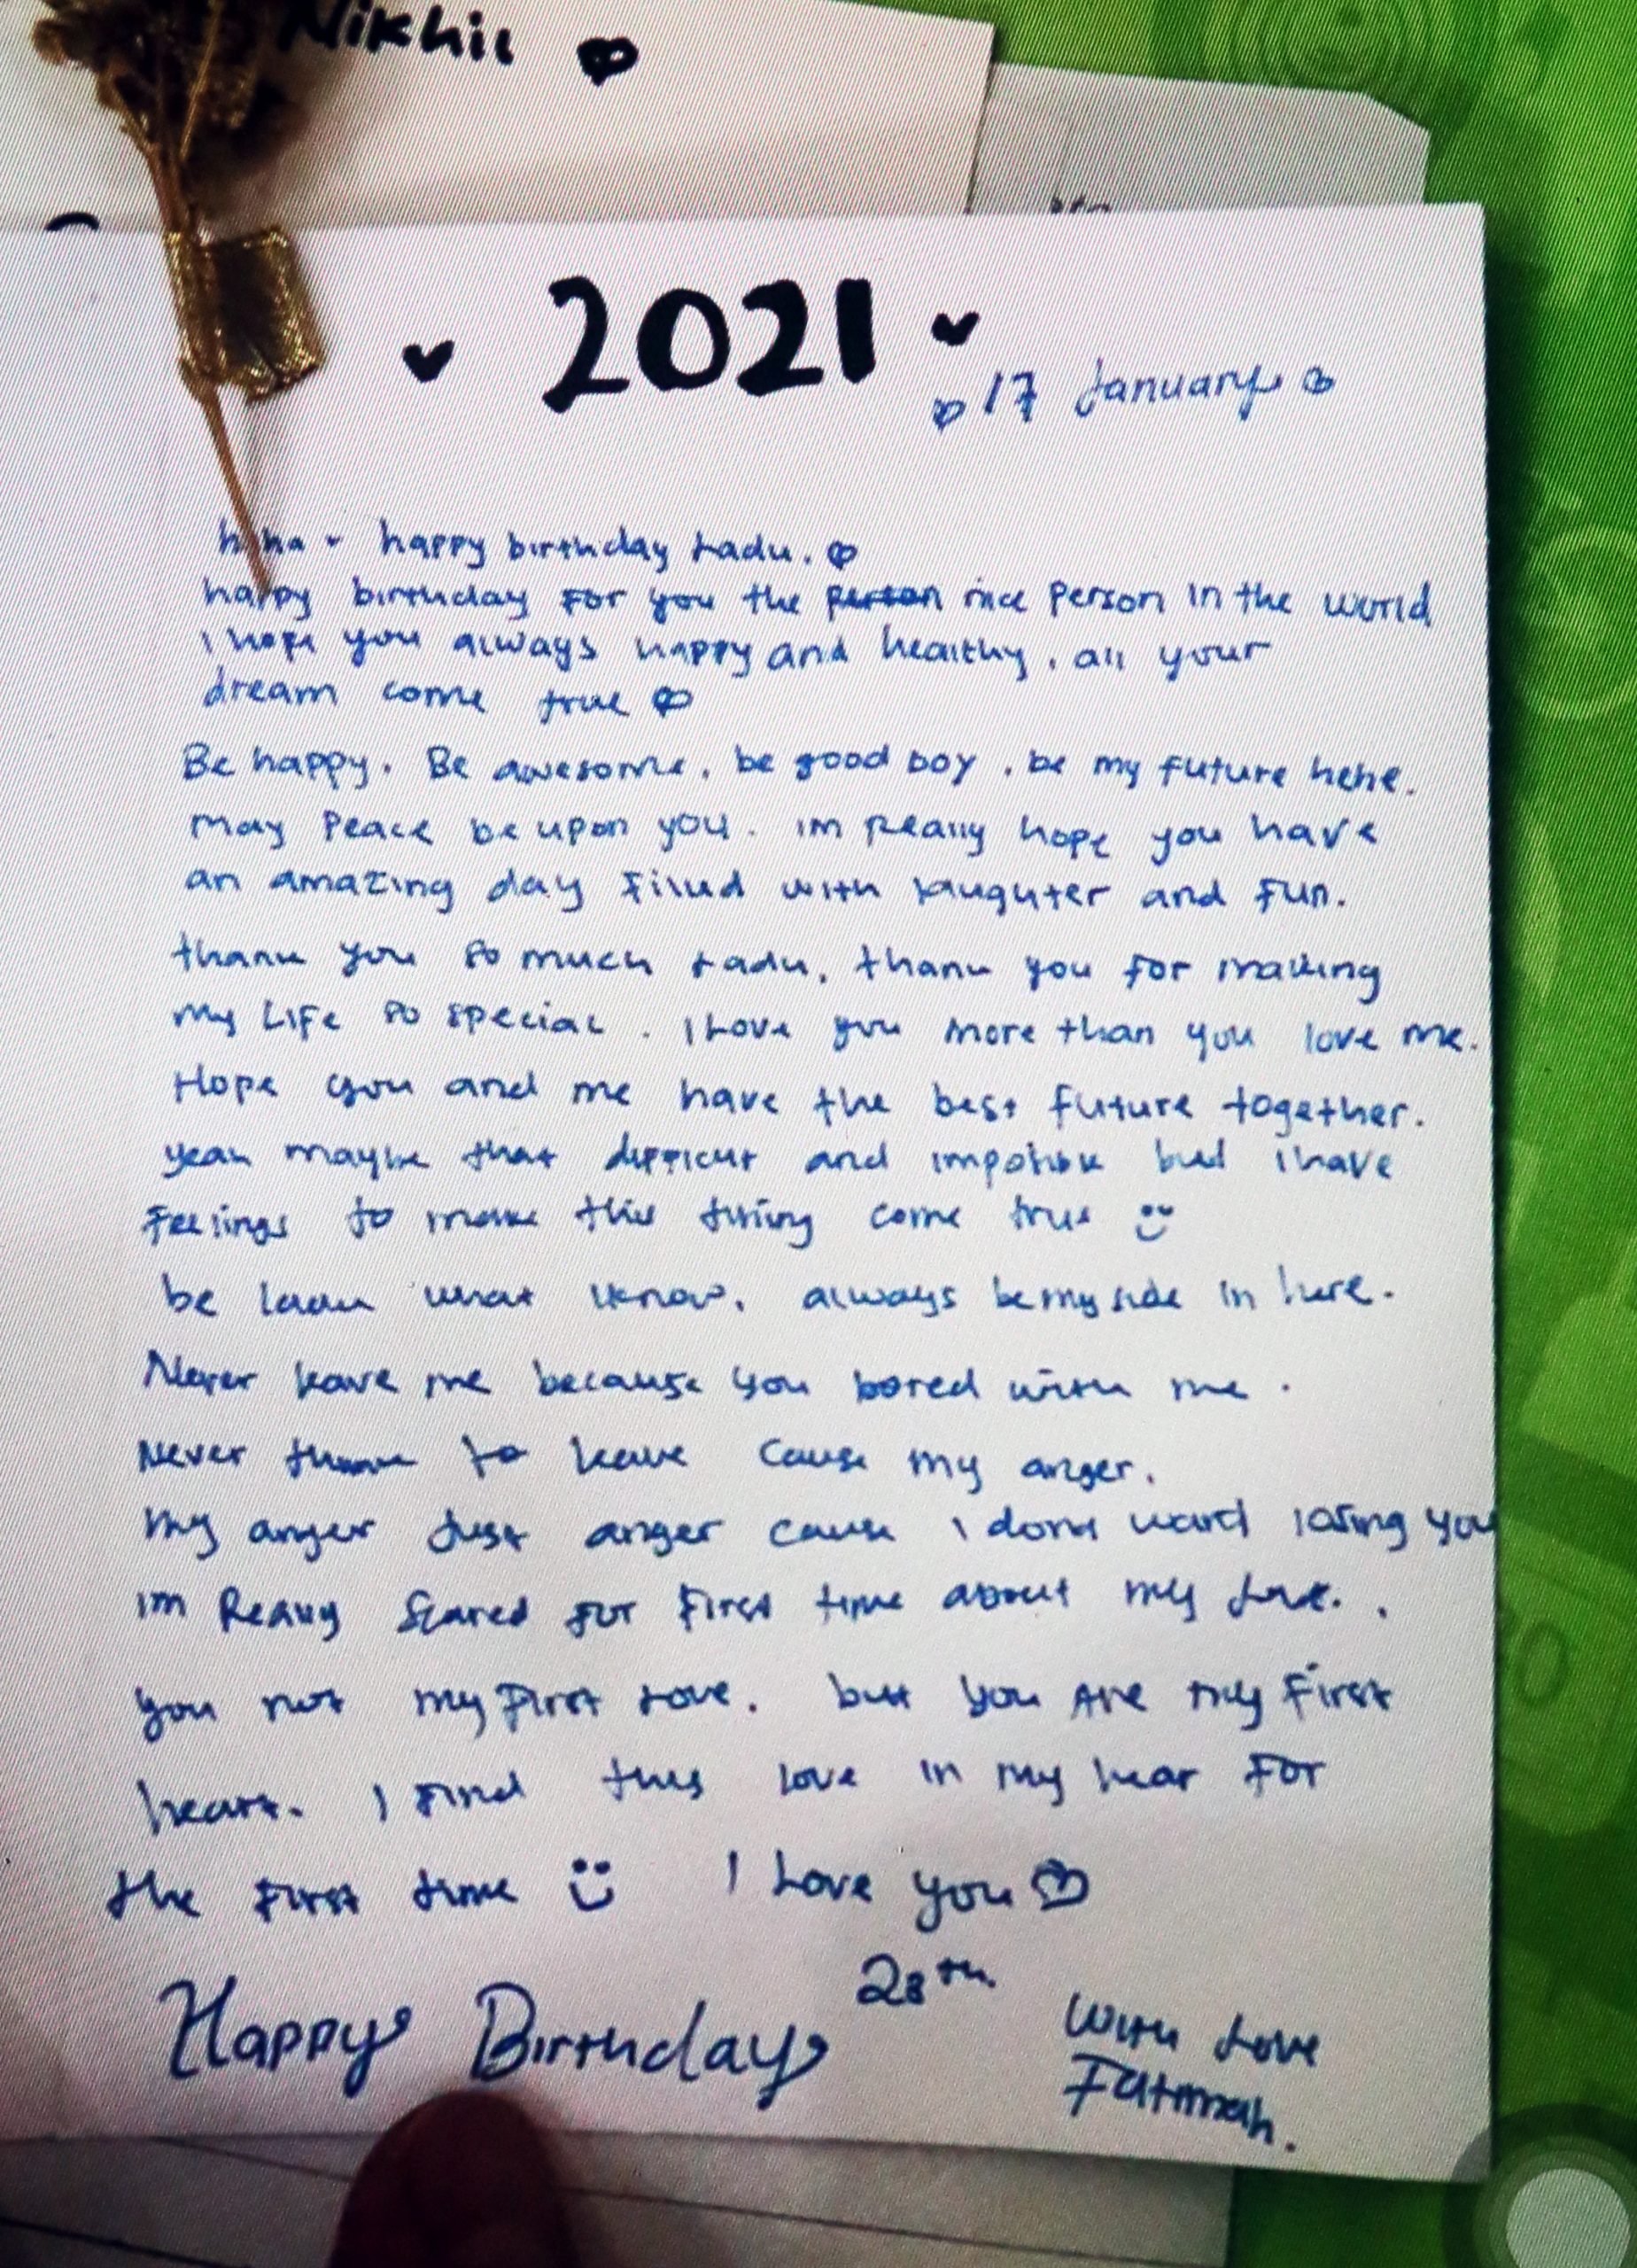 Nikhil
2021
17 January
haha happy birthday Ladu.
happy birthday for you the person nice person in the world
I hope you always happy and healthy, all your
dream come true
Be happy. Be awesome, be good boy, be my future hehe.
may peace be upon you. im really hope you have
an amazing day filled with laughter and fun.
thank you so much Ladu, thank you for making
my life so special. I love you more than you love me.
Hope you and me have the best future together.
yeah maybe that difficult and impossible but i have
feelings to make this thing come true
be what I know, always be my side in here.
Never leave me because you bored with me.
Never to leave cause my anger.
my anger just anger cause I dont want losing you
im Really scared for first time about my love.
you not my first love. but you are my first
heart. I find this love in my hear for
the first time I Love you
Happy Birthday 28th
with love
Fatimah.